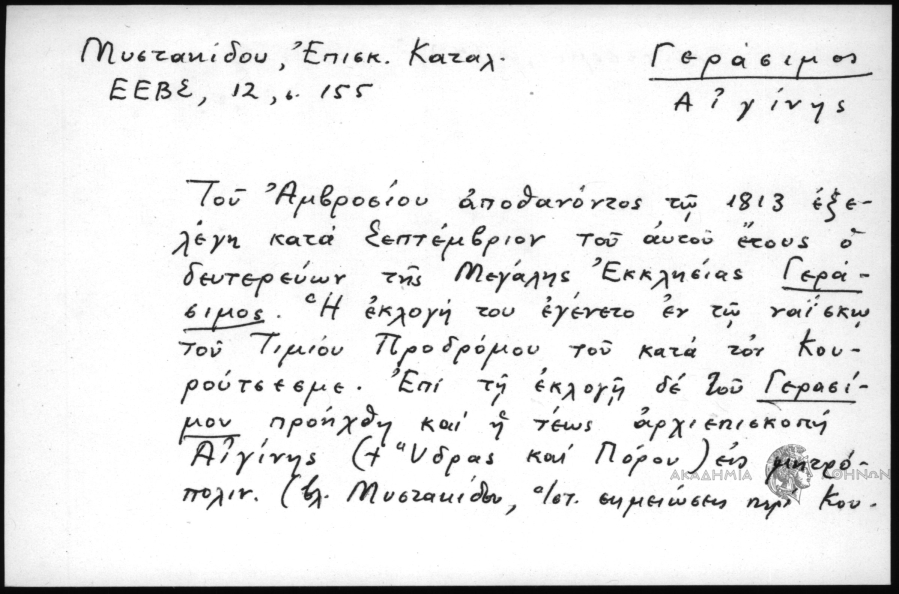 Μυστακίδου, Ἐπισκ. Καταλ.
ΕΕΒΣ, 12, σ. 155
Γεράσιμος
Αἰγίνης
Τοῦ Ἀμβροσίου ἀποθανόντος τῷ 1813 ἐξε-
λέγη κατά Σεπτέμβριον τοῦ αὐτοῦ ἔτους ὁ
δευτερεύων τῆς Μεγάλης Ἐκκλησίας Γερά-
σιμος. Ἡ ἐκλογή του ἐγένετο ἐν τῷ ναΐσκῳ
τοῦ Τιμίου Προδρόμου τοῦ κατά τόν Κου-
ρούτσεσμε. Ἐπί τῇ ἐκλογῇ δέ τοῦ Γερασί-
μου προήχθη καί ἡ τέως ἀρχιεπισκοπή
Αἰγίνης (+ Ὕδρας καί Πόρου) εἰς μητρό-
πολιν. (βλ. Μυστακίδου, Ἱστ. σημειώσεις περί Κου-
ΑΚΑΔΗΜΙΑ ΑΘΗΝΩΝ